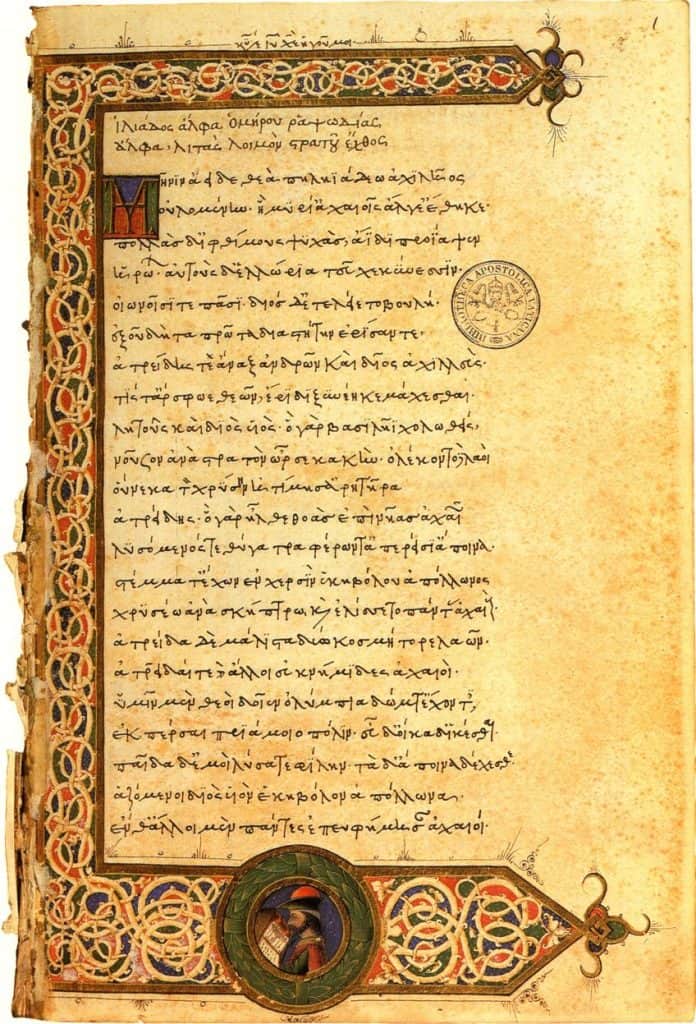 1
ἰλιάδος ἄλφα ὁμήρου ῥαψωδίας
ἄλφα, λιτὰς λοιμὸν στρατοῦ ἔχθος
Μῆνιν ἄειδε θεὰ πηληϊάδεω ἀχιλῆος
οὐλομένην. ἣ μυρί' ἀχαιοῖς ἄλγε' ἔθηκε·
πολλὰς δ' ἰφθίμους ψυχὰς, ἄϊδι προΐαψεν
ἡρώων. αὐτοὺς δὲ ἑλώρια τεῦχε κύνεσσιν·
οἰωνοῖσί τε πᾶσι· διὸς δ' ἐτελείετο βουλή·
ἐξ οὗ δὴ τὰ πρῶτα διαστήτην ἐρίσαντε·
ἀτρείδης τὲ ἄναξ ἀνδρῶν καὶ δῖος ἀχιλλεύς·
τίς τάρ σφωε θεῶν, ἔριδι ξυνέηκε μάχεσθαι·
λητοῦς καὶ διὸς υἱός· ὁ γὰρ βασιλῆϊ χολωθείς,
νοῦσον ἀνὰ στρατὸν ὦρσε κακὴν· ὀλέκοντο δὲ λαοὶ
οὕνεκα τὸν χρύσην ἠτίμησ' ἀρητῆρα
ἀτρείδης· ὁ γὰρ ἦλθε θοὰς ἐπὶ νῆας ἀχαιῶν
λυσόμενός τε θύγατρα φέρων τ' ἀπερείσι' ἄποινα·
στέμμα τ' ἔχων ἐν χερσὶν ἑκηβόλου ἀπόλλωνος
χρυσέω ἀνὰ σκήπτρω, καὶ ἐλίσσετο πάντας ἀχαιούς·
ἀτρείδα δὲ μάλιστα δύω κοσμήτορε λαῶν·
ἀτρεῖδαί τε καὶ ἄλλοι ἐϋκνήμιδες ἀχαιοί·
ὑμῖν μὲν θεοὶ δοῖεν ὀλύμπια δώματ' ἔχοντες,
ἐκπέρσαι πριάμοιο πόλιν· εὖ δ' οἴκαδ' ἱκέσθαι·
παῖδα δέ μοι λύσατε φίλην· τὰ δ' ἄποινα δέχεσθαι·
ἁζόμενοι διὸς υἱὸν ἑκηβόλον ἀπόλλωνα,
ἔνθ' ἄλλοι μὲν πάντες ἐπευφήμησαν ἀχαιοί·
BIBLIOTECA APOSTOLICA VATICANA